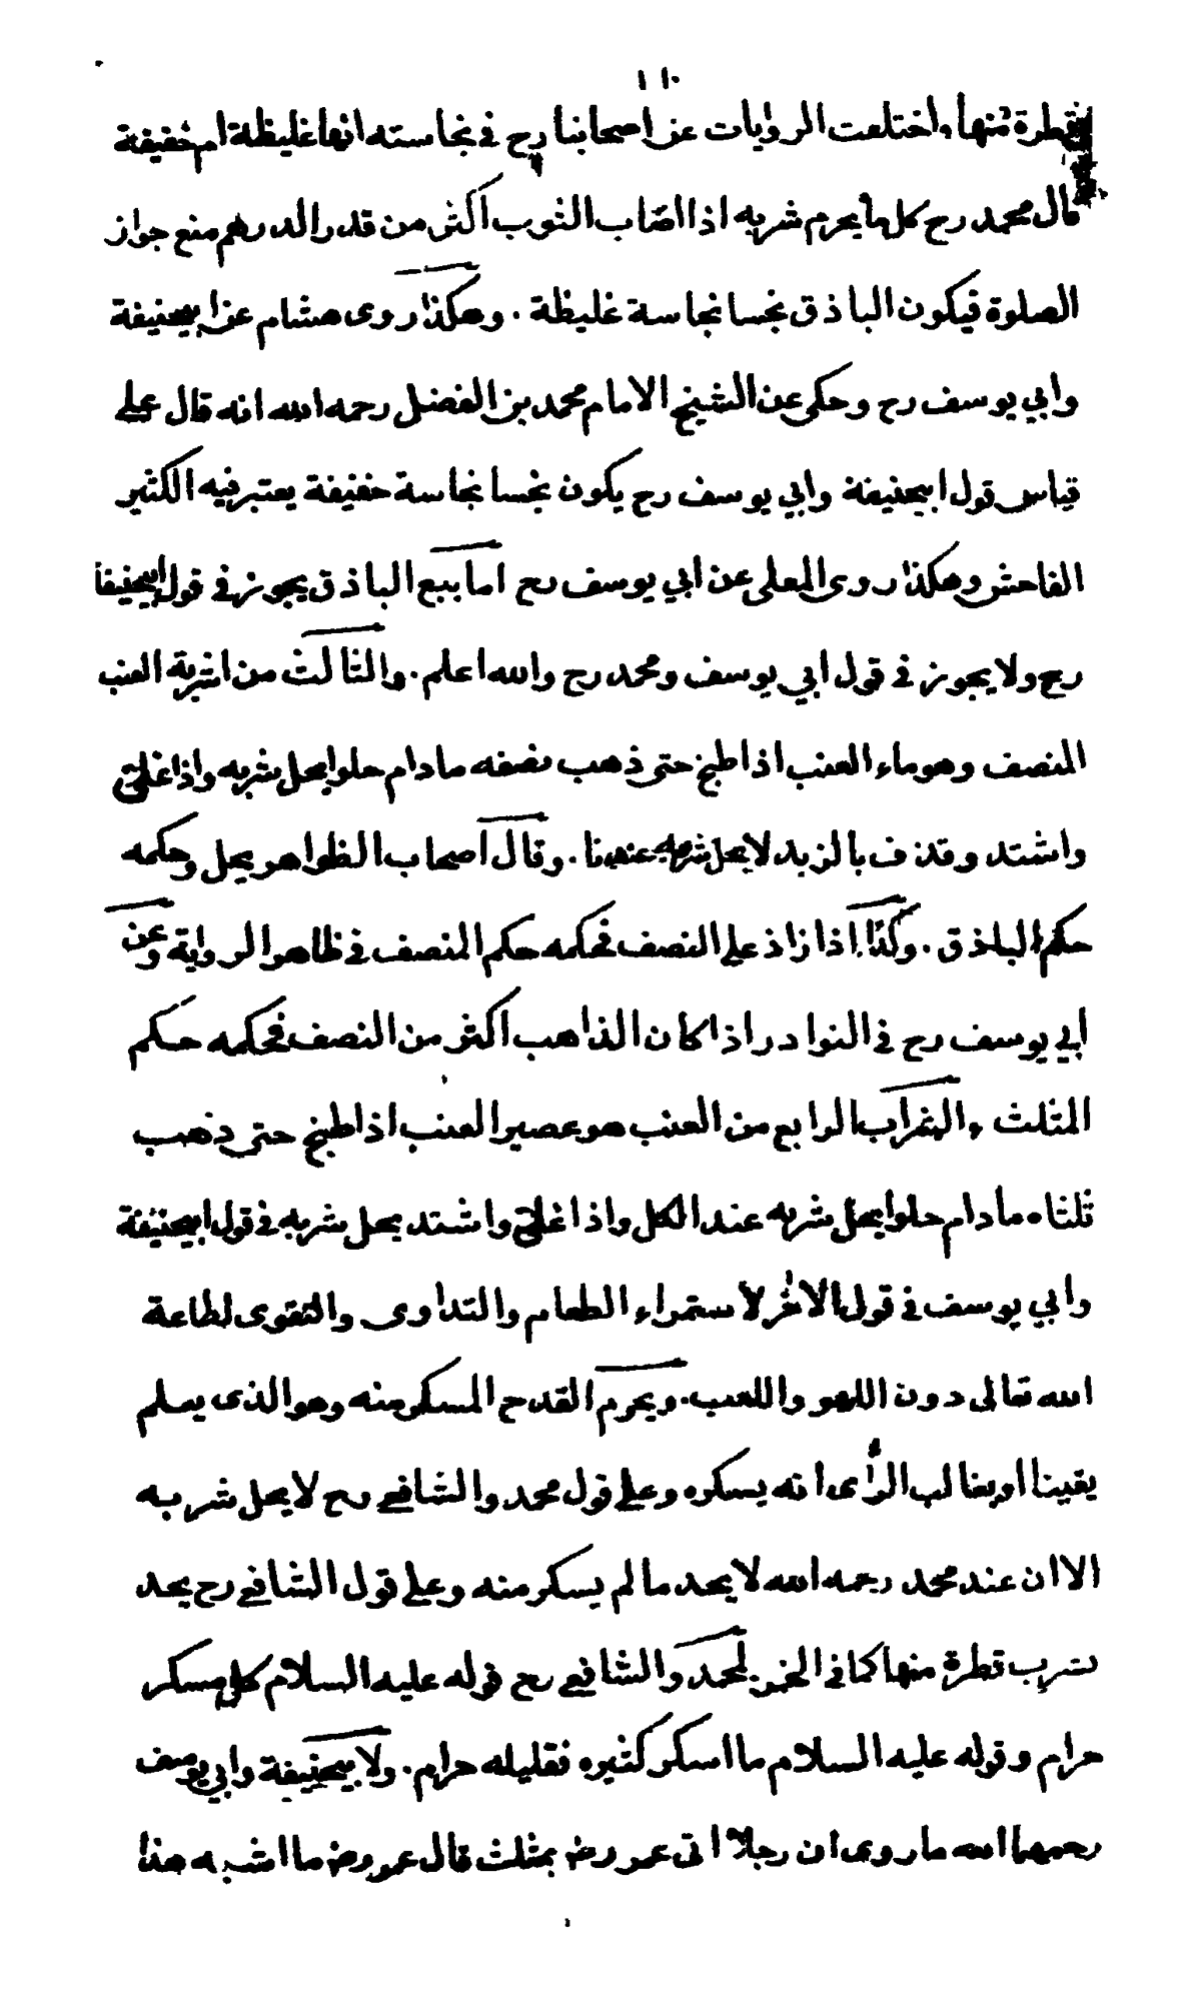 ١١٠
بقطرة منها واختلفت الروايات عن اصحابنا رح فى نجاسته انها غليظة ام خفيفة
قال محمد رح كل ما يحرم شربه اذا اصاب الثوب اكثر من قدر الدرهم منع جواز
الصلوة فيكون الباذق نجسا نجاسة غليظة . وهكذا روى هشام عن ابيحنيفة
وابي يوسف رح وحكى عن الشيخ الامام محمد بن الفضل رحمه الله انه قال على
قياس قول ابيحنيفة وابي يوسف رح يكون نجسا نجاسة خفيفة يعتبر فيه الكثير
الفاحش وهكذا روى المعلى عن ابي يوسف رح اما بيع الباذق يجوز فى قول ابيحنيفة
رح ولا يجوز فى قول ابي يوسف ومحمد رح والله اعلم . والثالث من اشربة العنب
المنصف وهو ماء العنب اذا طبخ حتى ذهب نصفه مادام حلوا يحل شربه واذا غلى
واشتد وقذف بالزبد لا يحل شربه عندنا . وقال اصحاب الظواهر يحل وحكمه
حكم الباذق . وكذا اذا زاد على النصف فحكمه حكم المنصف فى ظاهر الرواية وعن
ابي يوسف رح فى النوادر اذا كان الذاهب اكثر من النصف فحكمه حكم
المثلث والشراب الرابع من العنب هو عصير العنب اذا طبخ حتى ذهب
ثلثاه مادام حلوا يحل شربه عند الكل واذا غلى واشتد يحل شربه فى قول ابيحنيفة
وابي يوسف فى قول الآخر لاستمراء الطعام والتداوى والتقوى لطاعة
الله تعالى دون اللهو واللعب . ويحرم القدح المسكر منه وهو الذى يعلم
يقينا او بغالب الرأى انه يسكره وعلى قول محمد والشافعى رح لا يحل شربه
الا ان عند محمد رحمه الله لا يحد ما لم يسكر منه وعلى قول الشافعى رح يحد
بشرب قطرة منها كما فى الخمر . لمحمد والشافعى رح قوله عليه السلام كل مسكر
حرام وقوله عليه السلام ما اسكر كثيره فقليله حرام . ولابيحنيفة وابي يوسف
رحمهما الله ما روى ان رجلا اتى عمر رض بمثلث قال عمر رض ما اشبه هذا